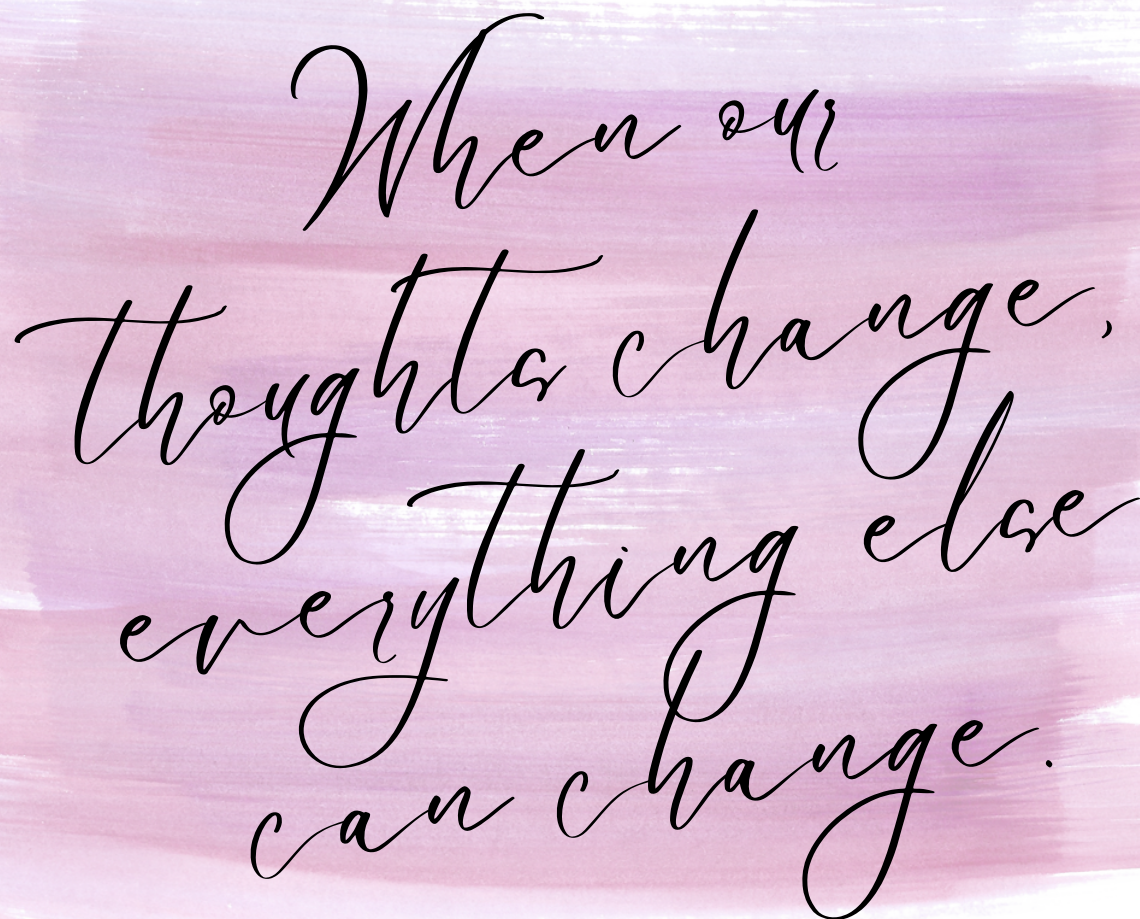 When our
thoughts change,
everything else
can change.